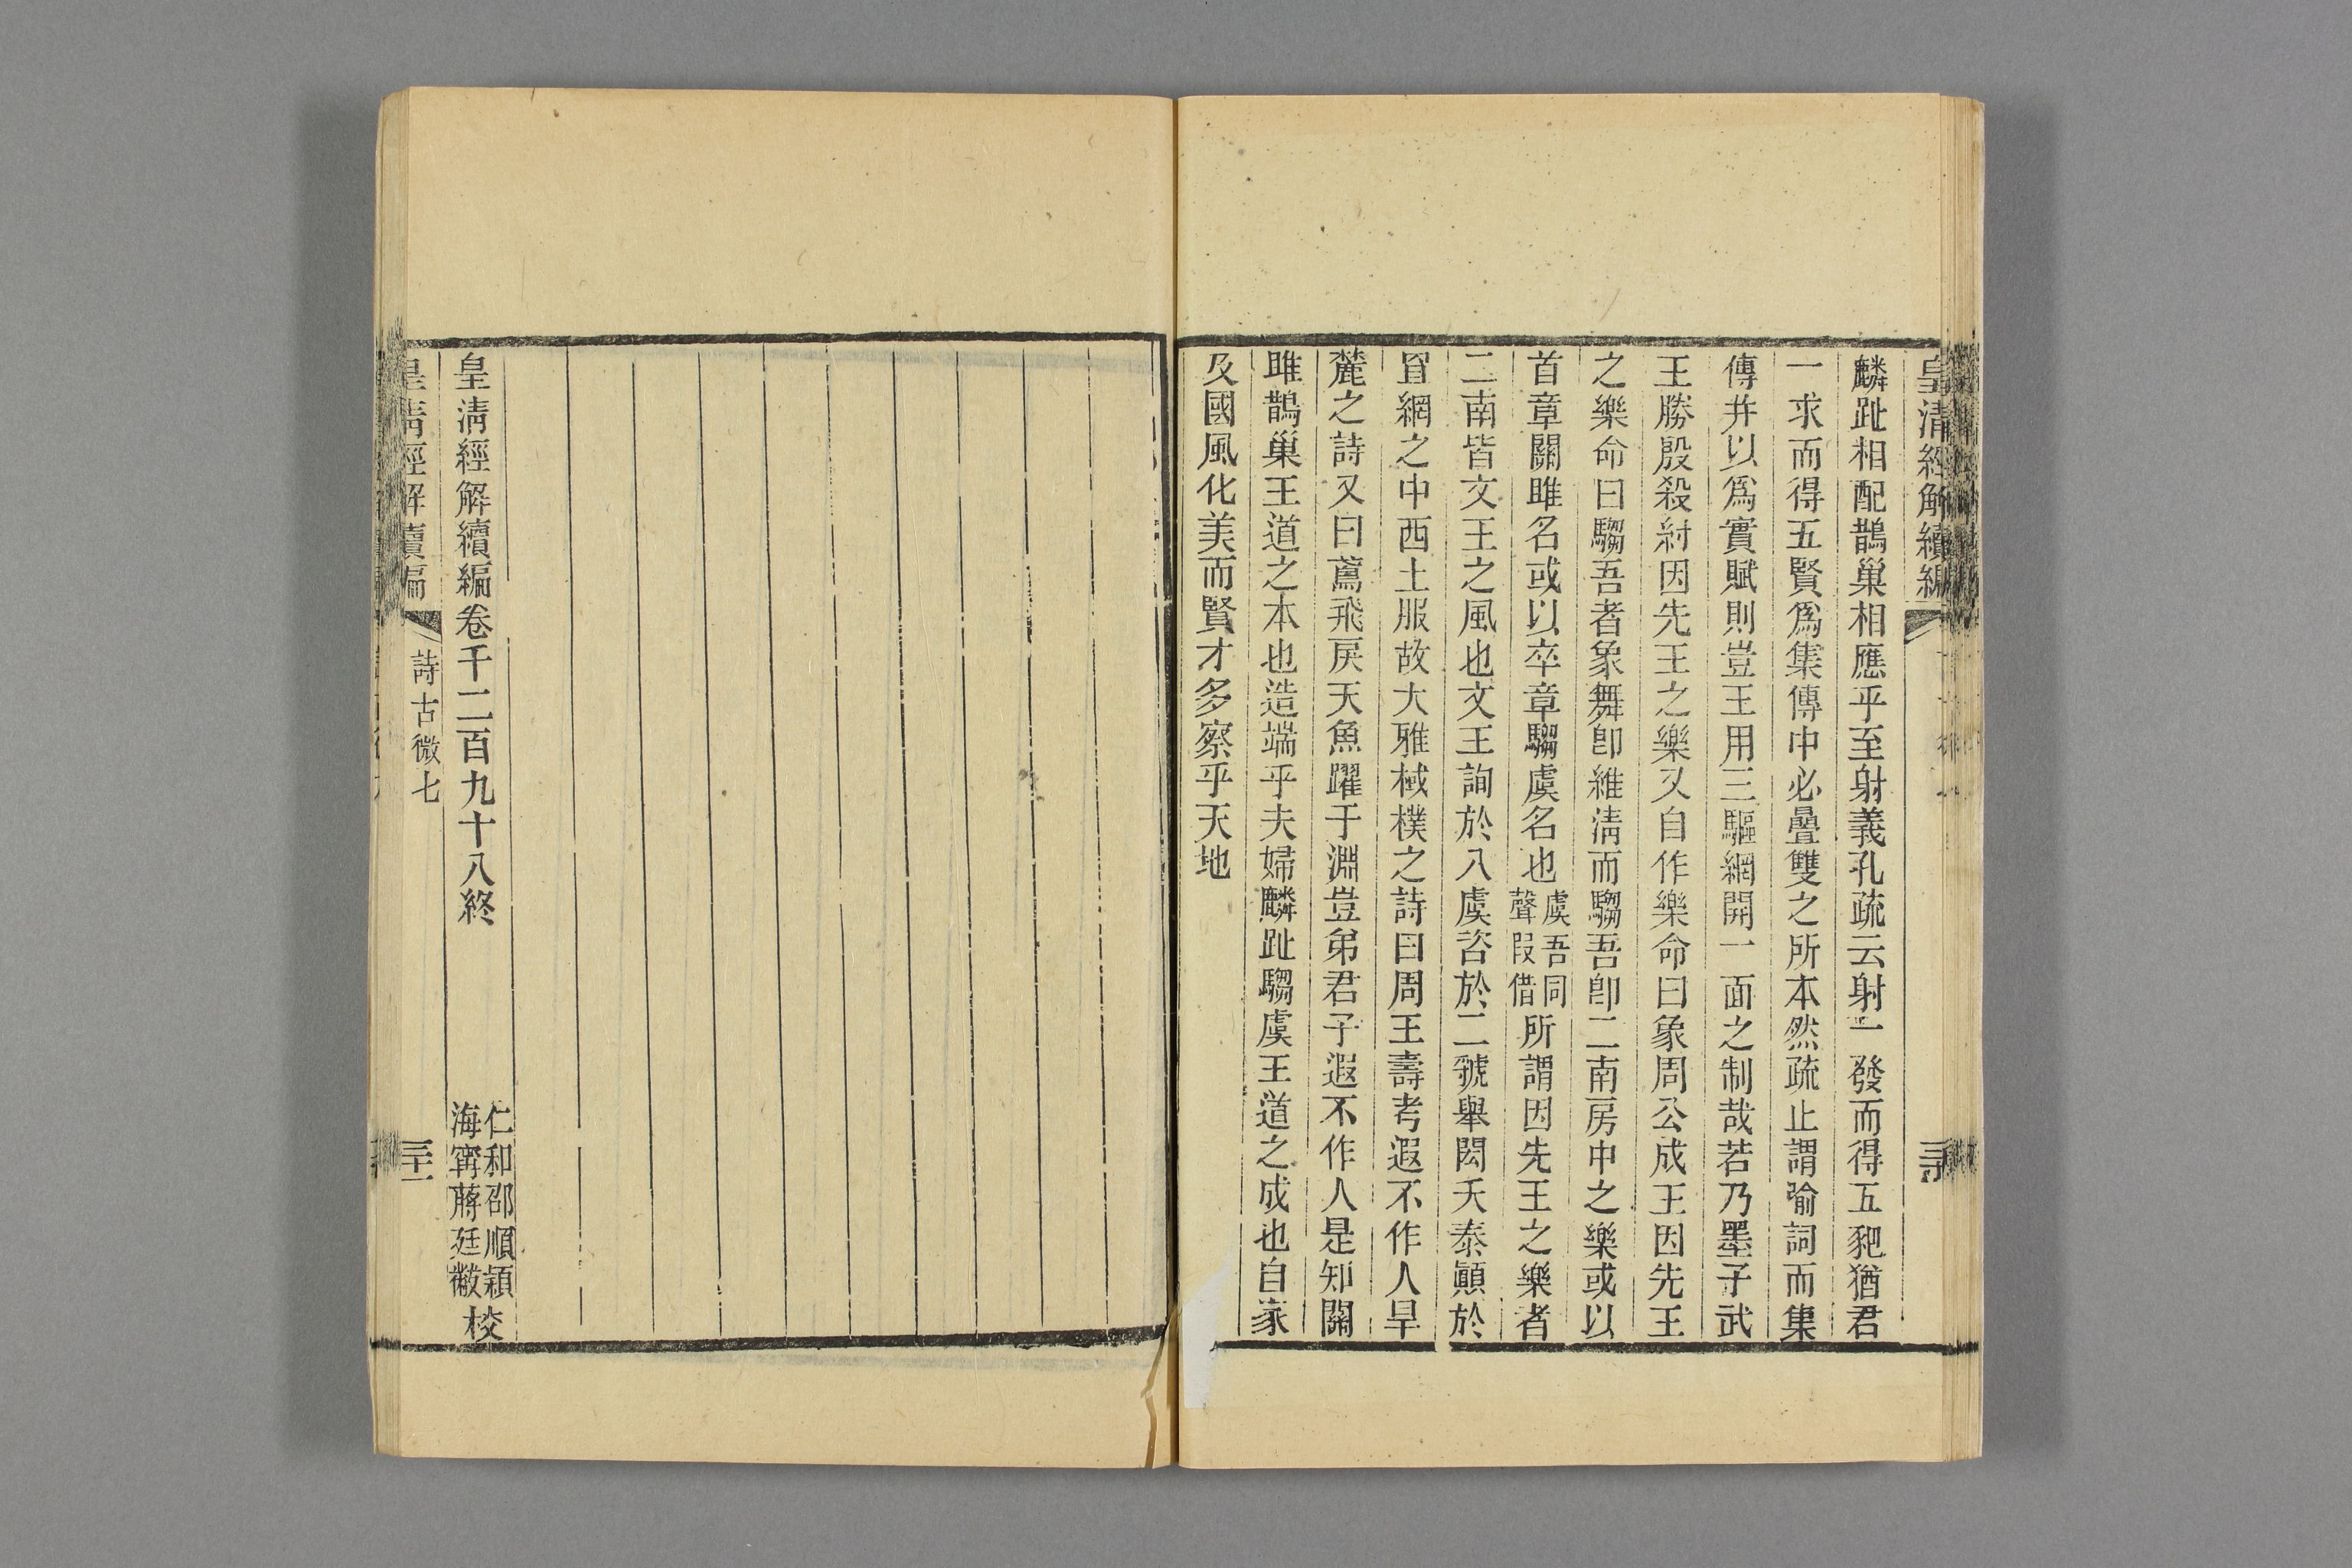 皇清經解續編
麟趾相配鵲巢相應乎至射義孔疏云射一發而得五豝猶君
一求而得五賢爲集傳中必曡雙之所本然疏止謂喻詞而集
傳并以爲實賦則豈王用三驅網開一面之制哉若乃墨子武
王勝殷殺紂因先王之樂又自作樂命曰象周公成王因先王
之樂命曰騶吾者象舞卽維淸而騶吾卽二南房中之樂或以
首章關雎名或以卒章騶虞名也虞吾同聲假借所謂因先王之樂者
二南皆文王之風也文王詢於八虞咨於二虢舉閎夭泰顚於
罝網之中西土服故大雅棫樸之詩曰周王壽考遐不作人旱
麓之詩又曰鳶飛戾天魚躍于淵豈弟君子遐不作人是知關
雎鵲巢王道之本也造端乎夫婦麟趾騶虞王道之成也自家
及國風化美而賢才多察乎天地
皇淸經解續編卷千二百九十八終
仁和邵順潁
海寧蔣廷黻
校
皇淸經解續編 詩古微七 三十一